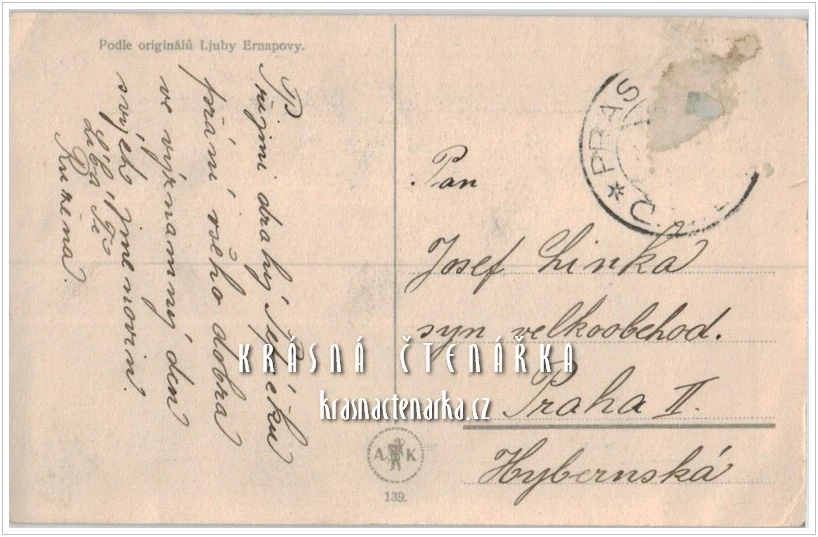 Podle originálů Ljuby Ernapovy.
Přijmi drahý Pepíčku
přání všeho dobra
ve významný den
svých jmenovin.
Líbá Tě
Růžena.
PRAS
Pan
Josef Linka
syn velkoobchod.
Praha II.
Hybernská
KRÁSNÁ ČTENÁŘKA
krasnactenarka.cz
A K
139.